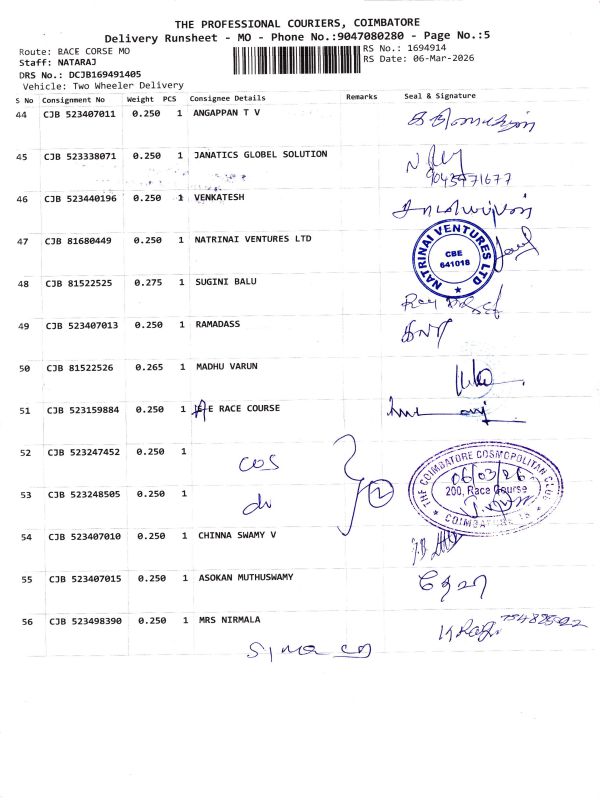 THE PROFESSIONAL COURIERS, COIMBATORE
Delivery Runsheet - MO - Phone No.:9047080280 - Page No.:5
Route: RACE CORSE MO
RS No.: 1694914
Staff: NATARAJ
RS Date: 06-Mar-2026
DRS No.: DCJB169491405
Vehicle: Two Wheeler Delivery
S No Consignment No Weight PCS Consignee Details Remarks Seal & Signature
44 CJB 523407011 0.250 1 ANGAPPAN T V
45 CJB 523338071 0.250 1 JANATICS GLOBEL SOLUTION
9043971677
46 CJB 523440196 0.250 1 VENKATESH
47 CJB 81680449 0.250 1 NATRINAI VENTURES LTD
NATRINAI VENTURES LTD
CBE
641018
48 CJB 81522525 0.275 1 SUGINI BALU
49 CJB 523407013 0.250 1 RAMADASS
50 CJB 81522526 0.265 1 MADHU VARUN
51 CJB 523159884 0.250 1 E RACE COURSE
52 CJB 523247452 0.250 1
cos
THE COIMBATORE COSMOPOLITAN CLUB
06/03/26
200, Race Course
COIMBATORE
53 CJB 523248505 0.250 1
2
54 CJB 523407010 0.250 1 CHINNA SWAMY V
55 CJB 523407015 0.250 1 ASOKAN MUTHUSWAMY
56 CJB 523498390 0.250 1 MRS NIRMALA